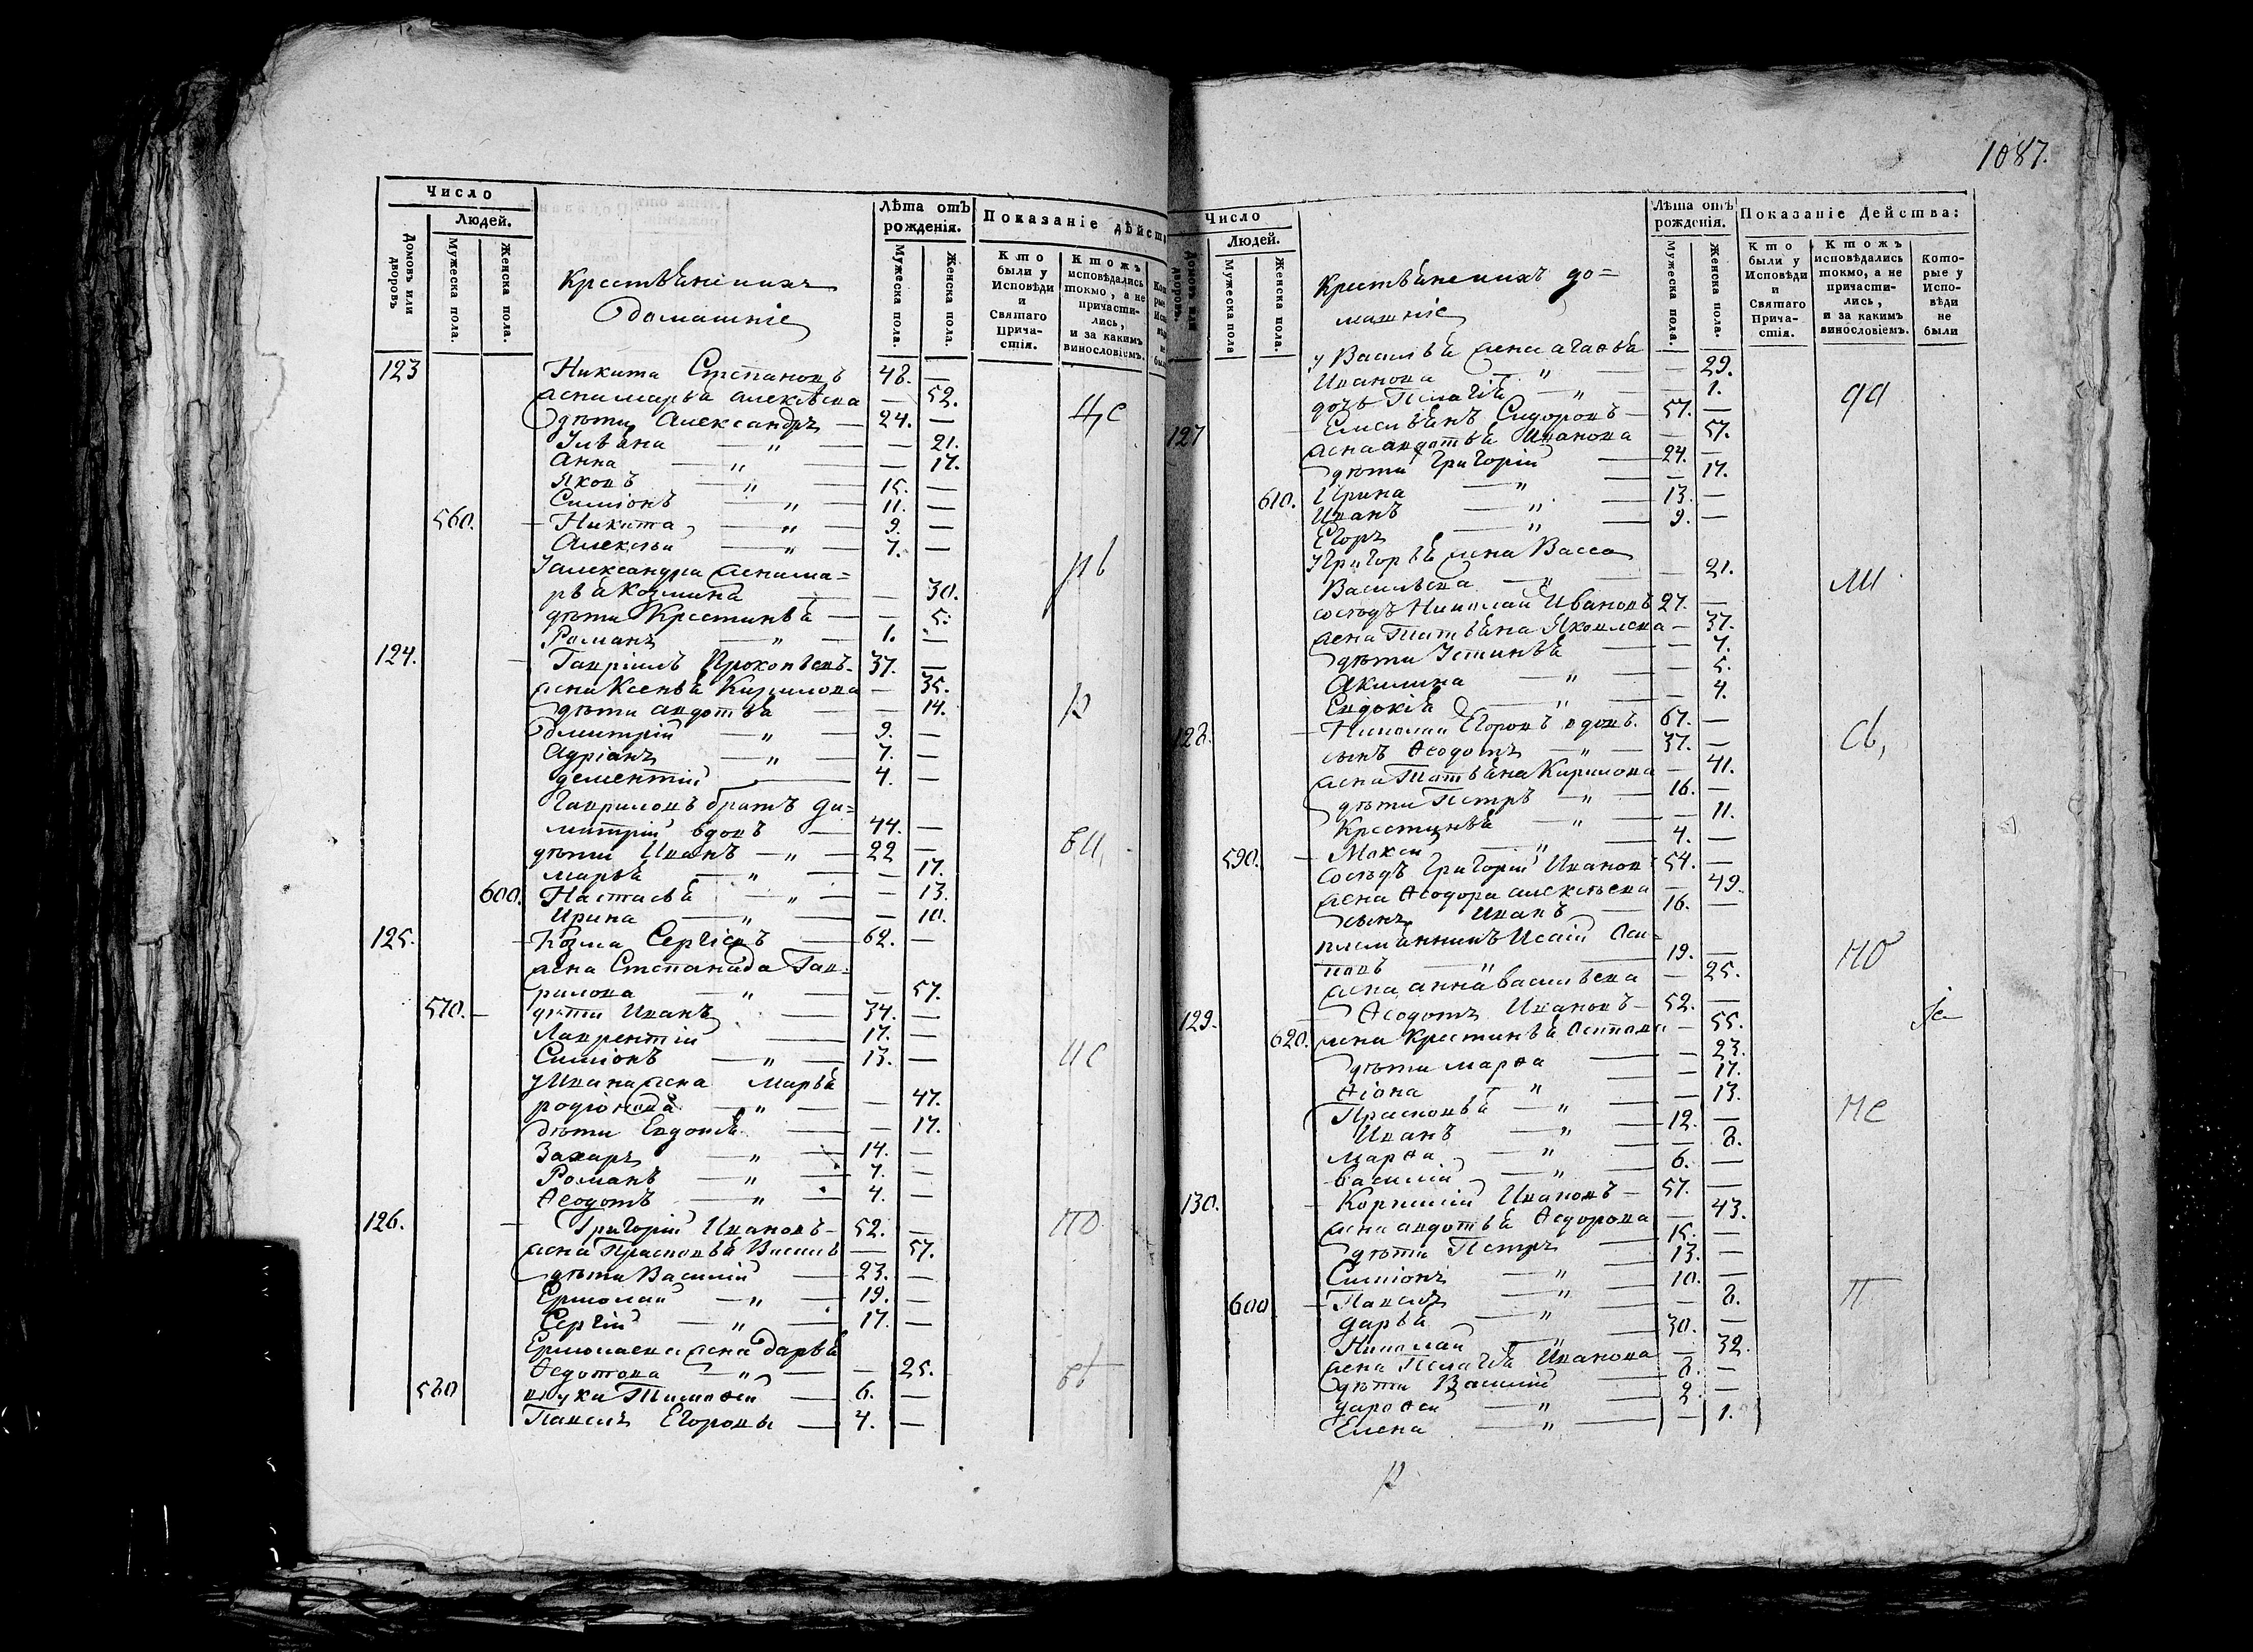 Число
Людей.
Домовъ или дворовъ.
Мужеска пола.
Женска пола.
Крестьянскихъ
домашніе
Лѣта отъ рожденія.
Мужеска пола.
Женска пола.
Показаніе дѣйст
Кто были у Исповѣди и Святаго Причастія.
Ктожъ исповѣдались токмо, а не причастились, и за какимъ винословіемъ.
123 Никита Степановъ 48. —
жена Марья Алексѣева — 52.
дѣти Александръ — 24. —
Ульяна — " — — 21.
Анна — " — — 17.
Яковъ — " — 15. —
Симіонъ — " — 11. —
560. Никита — " — 9. —
Алексѣй — " — 7. —
У Александра жена Ма=
рья Козмина — — 30.
дѣти Крестинья — — 5.
Романъ — " — 1. —
124. Гавріилъ Прокопьевъ 37. —
жена Ксенья Кирилова — 35.
дѣти Авдотья — — 14.
Дмитрій — " — 9. —
Адріанъ — " — 7. —
Дементій — 4. —
Гавриловъ братъ Ди=
митрій вдовъ — 44. —
дѣти Иванъ — " — 22 —
Марья — " — — 17.
600. Настасья — " — — 13.
Ирина — " — — 10.
125. Козма Сергіевъ — 62. —
жена Степанида Гав=
рилова — " — — 57.
570. дѣти Иванъ — 34. —
Лаврентій — 17. —
Симіонъ — " — 13. —
У Ивана жена Марья
Родіонова — " — — 47.
дѣти Евдотья — — 17.
Захаръ — " — 14. —
Романъ — " — 7. —
Ѳеодотъ — " — 4. —
126. Григорій Ивановъ — 52. —
жена Прасковья Василь — 57.
дѣти Василій — 23. —
Ермолай — " — 19. —
Сергій — " — 17. —
Ермолаева жена Дарья
Ѳедотова — " — — 25.
580 внуки Тимоѳей — 6. —
Павелъ Егоровы — 4. —
1087.
Число
Людей.
Домовъ или дворовъ.
Мужеска пола
Женска пола.
Крестьянскихъ до=
машніе
Лѣта отъ рожденія.
Мужеска пола.
Женска пола.
Показаніе Действа:
Кто были у Исповѣди и Святаго Причастія.
Ктожъ исповѣдались токмо, а не причастились, и за какимъ винословіемъ.
Которые у Исповѣди не были
у Василья жена Агаѳья
Иванова — " — — 29.
дочь Пелагія — " — — 1.
127 Емельянъ Сидоровъ — 57. —
жена Авдотья Иванова — 57.
дѣти Григорій — 24. —
610. Ирина — " — — 17.
Иванъ — " — 13. —
Егоръ — " — 9. —
У Григорья жена Васса
Васильева — " — — 21.
сосѣдъ Николай Ивановъ 27. —
жена Татьяна Яковлева — 37.
дѣти Устинья — — 7.
Акилина — " — — 5.
Евдокія — " — — 4.
128. Николай Егоровъ вдовъ. 67. —
сынъ Ѳеодотъ — " — 37. —
жена Татьяна Кирилова — 41.
дѣти Петръ — " — 16. —
Крестинья — " — — 11.
590. Макси — " — 4. —
Сосѣдъ Григорій Ивановъ 54. —
жена Ѳеодора Алексѣева — 49.
сынъ Иванъ — 16. —
племянникъ Исаій Оси=
повъ — " — 19. —
жена Анна Васильева — 25.
129. Ѳеодотъ Ивановъ — 52. —
620. жена Крестинья Осипова — 55.
дѣти Марѳа — — 23.
Ѳіона — " — — 17.
Прасковья — " — — 13.
Иванъ — " — 12. —
Марѳа — " — — 8.
Василій — " — 6. —
130. Корнилій Ивановъ — 57. —
жена Авдотья Ѳедорова — 43.
дѣти Петръ — 15. —
Симіонъ — " — 13. —
600 Павелъ — " — 10. —
Дарья — " — — 8.
Николай — " — 30. —
жена Пелагія Иванова — 32.
дѣти Василій — 8. —
Дороѳей — " — 2. —
Елена — " — — 1.